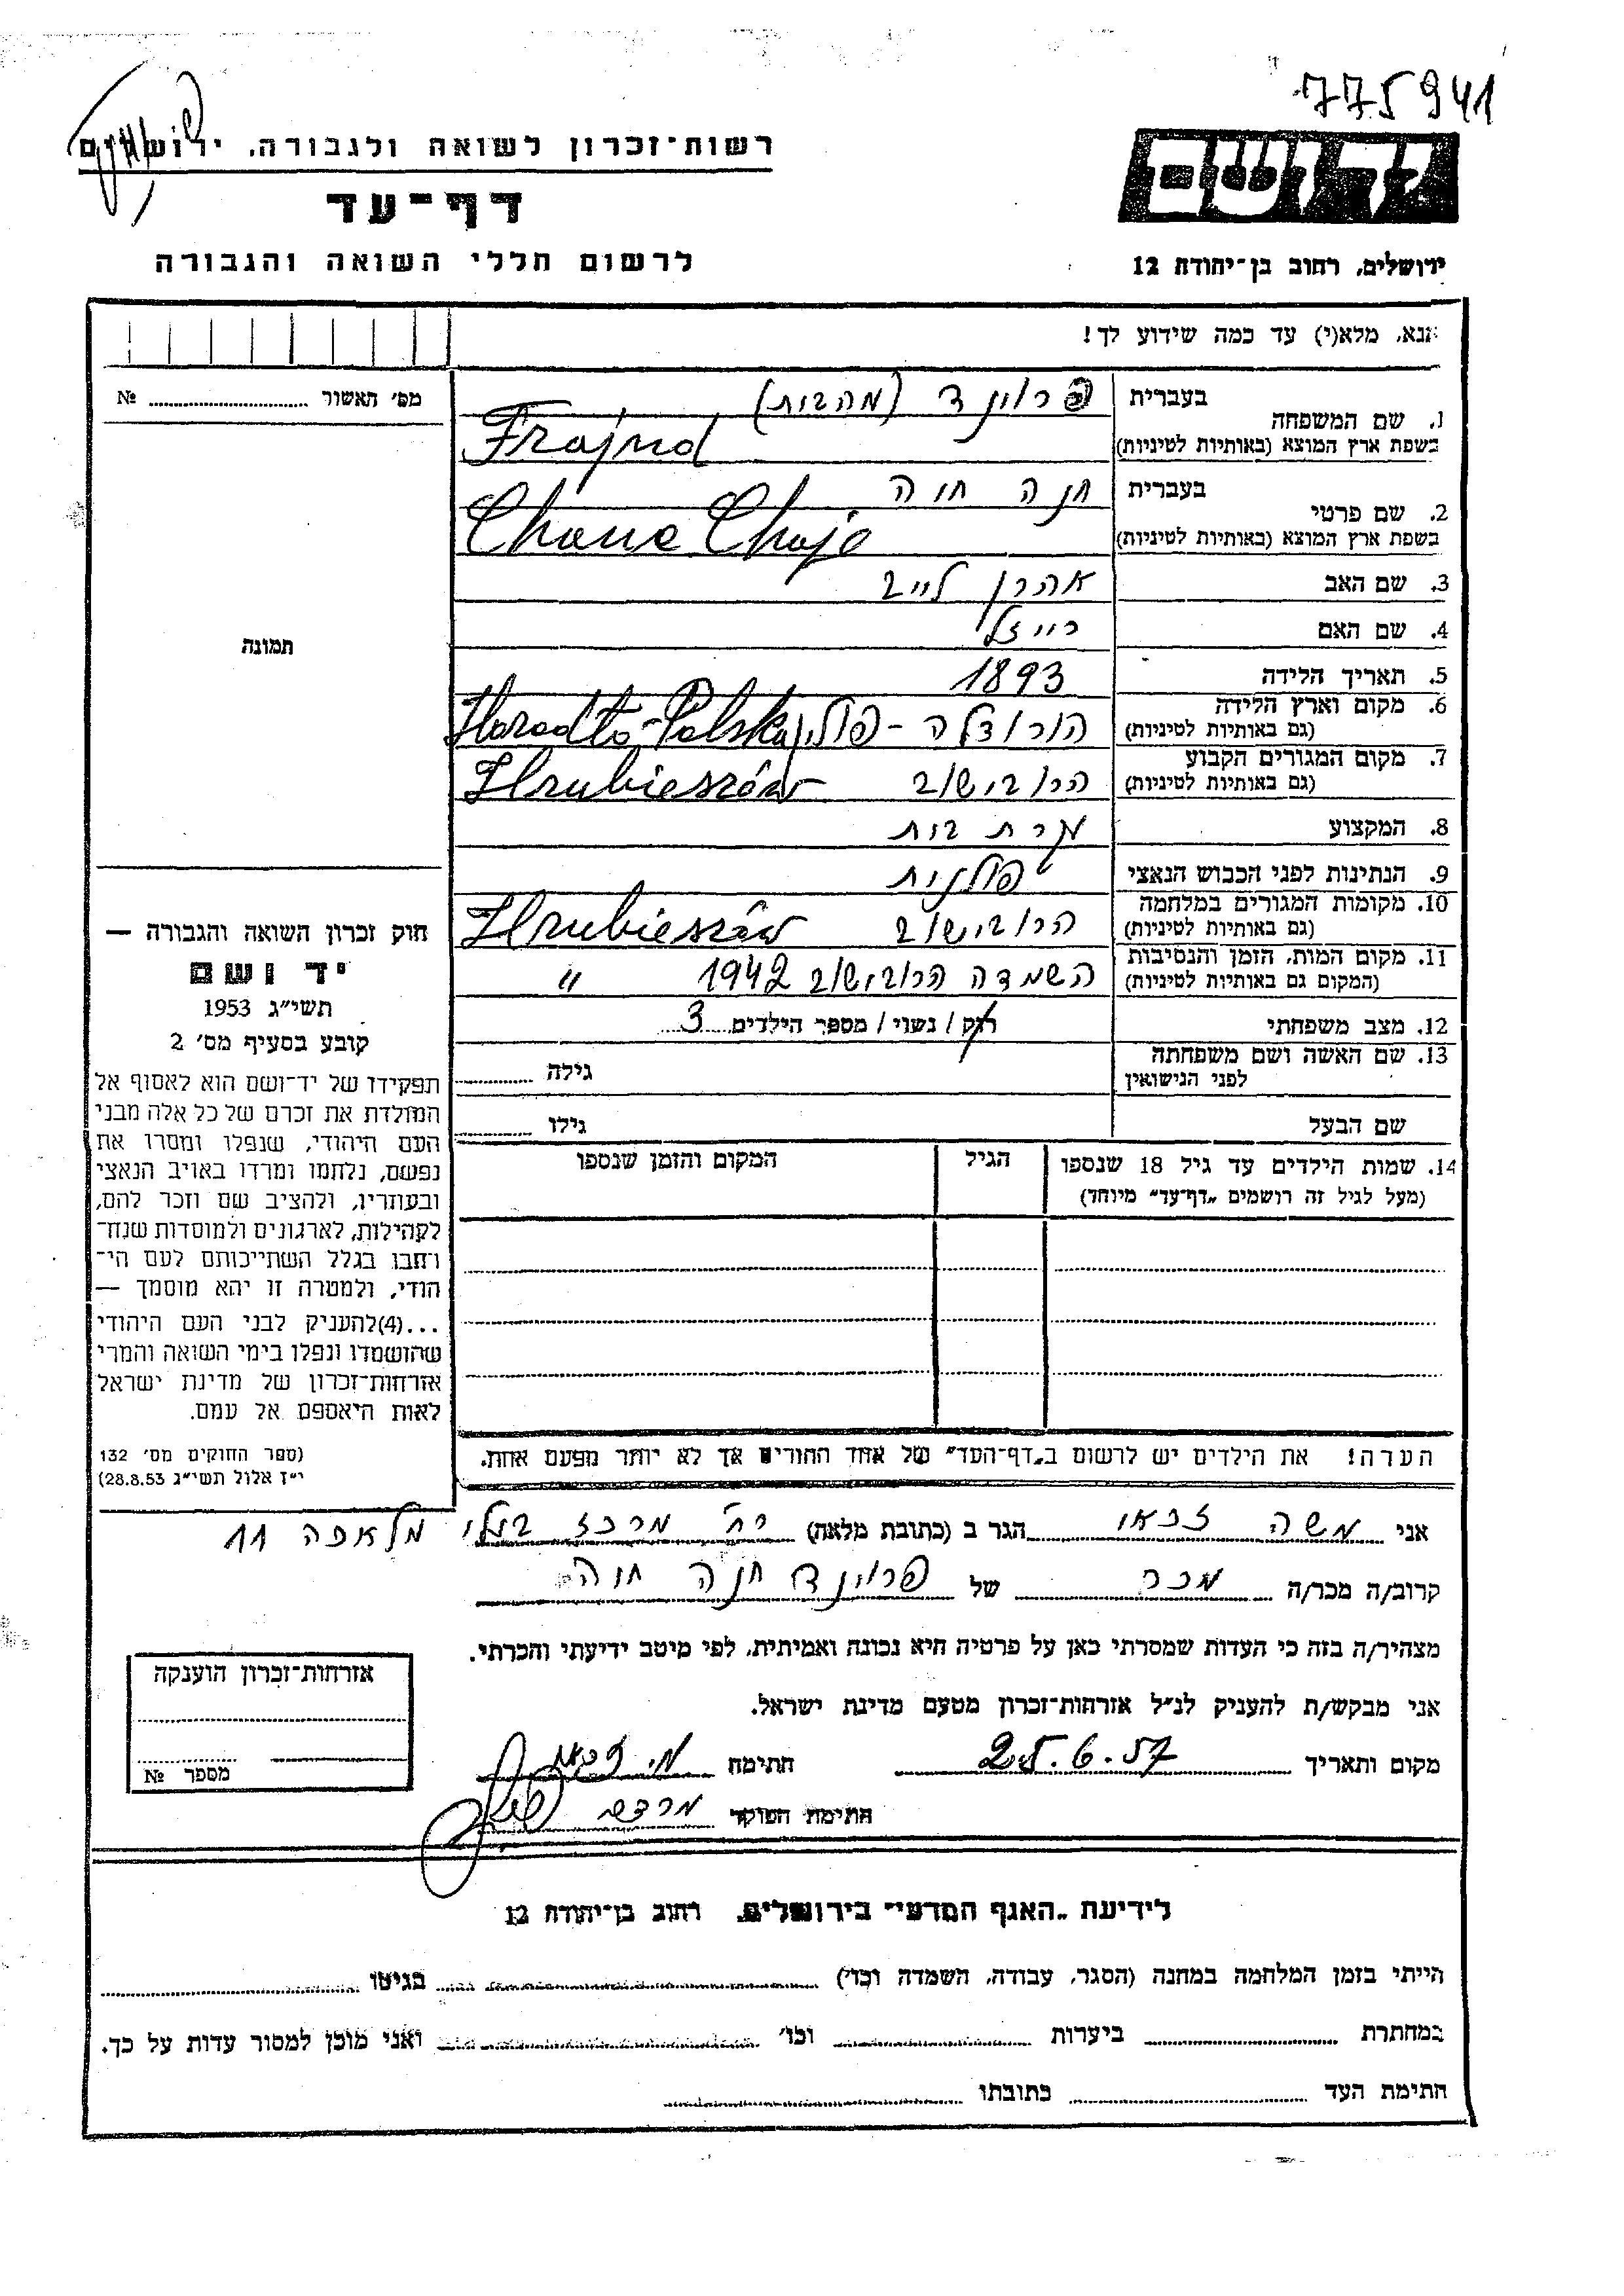 775941
רשות-זכרון לשואה ולגבורה, ירושלים
דף-עד
לרשום חללי השואה והגבורה
יד ושם
ירושלים, רחוב בן-יהודה 12
אנא, מלא(י) עד כמה שידוע לך!
מס' האשור № 
1. שם המשפחה בעברית פרוינד (מהבית)
בשפת ארץ המוצא (באותיות לטיניות) Frajnd
2. שם פרטי בעברית חנה חוה
בשפת ארץ המוצא (באותיות לטיניות) Chana Chaja
3. שם האב אהרן לייב
4. שם האם רייזל
תמונה
5. תאריך הלידה 1893
6. מקום וארץ הלידה (גם באותיות לטיניות) הורודלה - פולין Horodło-Polska
7. מקום המגורים הקבוע (גם באותיות לטיניות) הרובישוב Hrubieszów
8. המקצוע עקרת בית
9. הנתינות לפני הכבוש הנאצי פולנית
10. מקומות המגורים במלחמה (גם באותיות לטיניות) הרובישוב Hrubieszów
11. מקום המות, הזמן והנסיבות (המקום גם באותיות לטיניות) השמדה הרובישוב 1942 "
12. מצב משפחתי רוק / נשוי / מספר הילדים 3
13. שם האשה ושם משפחתה לפני הנישואין גילה
שם הבעל גילו
14. שמות הילדים עד גיל 18 שנספו הגיל המקום והזמן שנספו
(מעל לגיל זה רושמים "דף-עד" מיוחד)
הערה! את הילדים יש לרשום ב"דף-העד" של אחד ההורים אך לא יותר מפעם אחת.
חוק זכרון השואה והגבורה —
יד ושם
תשי"ג 1953
קובע בסעיף מס' 2
תפקידו של יד-ושם הוא לאסוף אל
המולדת את זכרם של כל אלה מבני
העם היהודי, שנפלו ומסרו את
נפשם, נלחמו ומרדו באויב הנאצי
ובעוזריו, ולהציב שם וזכר להם,
לקהילות, לארגונים ולמוסדות שנח-
רבו בגלל השתייכותם לעם הי-
הודי, ולמטרה זו יהא מוסמך —
...(4)להעניק לבני העם היהודי
שהושמדו ונפלו בימי השואה והמרי
אזרחות-זכרון של מדינת ישראל
לאות היאספם אל עמם.
(ספר החוקים מס' 132
י"ז אלול תשי"ג 28.8.53)
אני משה הגר ב (כתובת מלאה) רח' מרכז בעלי מלאכה 11
קרוב/ה מכר/ה מכר של פרוינד חנה חוה
מצהיר/ה בזה כי העדות שמסרתי כאן על פרטיה היא נכונה ואמיתית, לפי מיטב ידיעתי והכרתי.
אני מבקש/ת להעניק לנ"ל אזרחות-זכרון מטעם מדינת ישראל.
מקום ותאריך 25.6.57 חתימה
חתימת הפוקד
אזרחות-זכרון הוענקה
מספר №
לידיעת "האגף המדעי" בירושלים, רחוב בן-יהודה 12
הייתי בזמן המלחמה במחנה (הסגר, עבודה, השמדה וכו') בגיטו
במחתרת ביערות וכו' ואני מוכן למסור עדות על כך.
חתימת העד כתובתו